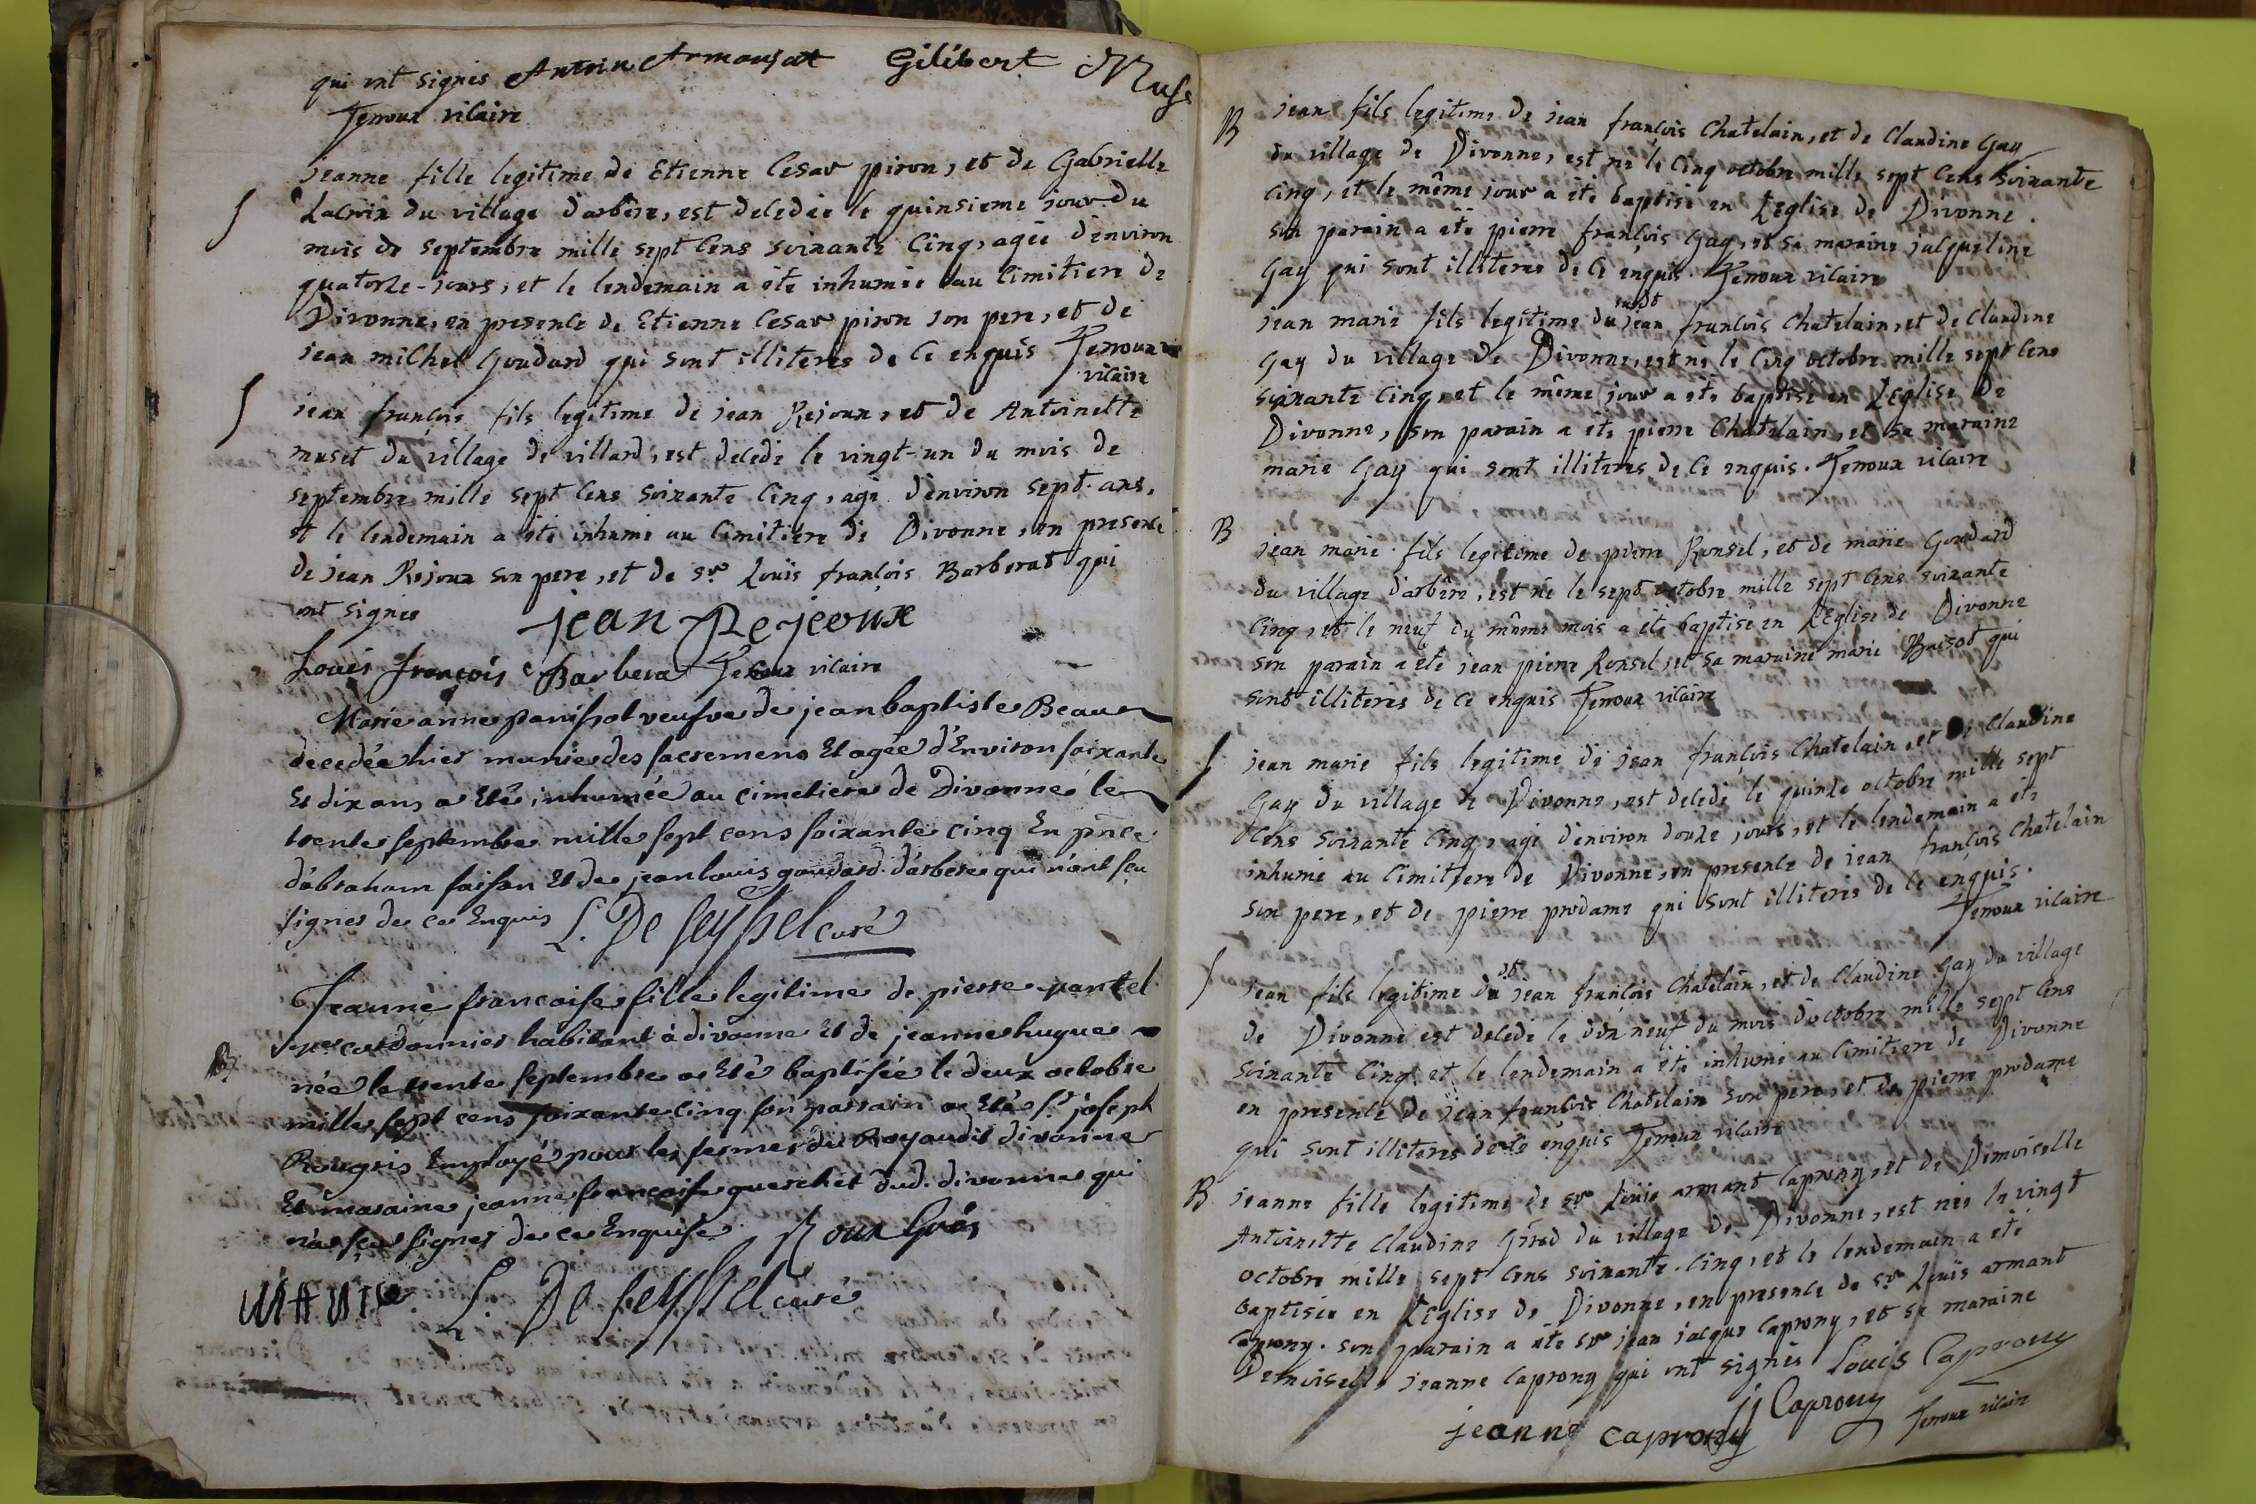 qui ont signés Antoin Armanjat Gilibert Muse
Jenoux vicaire
jeanne fille legitime de Etienne Cesar piron, et de Gabrielle
Lacroix du village d'arbère, est decedée le quinsieme jour du
mois de septembre mille sept cens soixante cinq, agée d'environ
quatorze-jours, et le lendemain a été inhumée au cimitiere de
Divonne, en presence de Etienne Cesar piron son pere, et de
jean michel Goudard qui sont illiterés de ce enquis Jenoux
vicaire
S
jean françois fils legitime de jean Rejoux, et de Antoinette
muset du village de villard, est decedé le vingt-un du mois de
septembre mille sept cens soixante cinq, agé d'environ sept ans,
et le lendemain a été inhumé au cimitiere de Divonne, en presence
de jean Rejoux son pere, et de sr Louïs françois Barberat qui
ont signés jean Rejeoux
Louis françois Barbera Jenoux vicaire
Marie anne panissot veufve de jean baptiste Beau
decedée hier munie des sacremens et agée d'Environ soixante
et dix ans a Eté inhumée au cimetiere de Divonne le
trente septembre mille sept cens soixante cinq En pnce
d'abraham faisan et de jean louis goudard d'arbere qui n'ont sçu
signer de ce Enquis L. De Seyssel curé
Jeanne francoise fille legitime de pierre pantel
mre cordonnier habitant à divonne et de jeanne hugue
B
née le trente septembre a Eté baptisée le deux octobre
mille sept cens soixante cinq son parrain a Eté Sr joseph
Rougris Employé pour les fermes du Roy audit divonne
Et maraine jeanne francoise guerchet dud. divonne qui
n'a sçu signer de ce Enquise Roux Gris
L. De Seyssel curé
B
jean fils legitime de jean françois Chatelain, et de Claudine Gay
du village de Divonne, est né le cinq octobre mille sept cens soixante
cinq, et le même jour a été baptisé en L'Eglise de Divonne.
son parain a été pierre françois Gay, et sa maraine jacqueline
Gay qui sont illiterés de ce enquis. Jenoux vicaire
jean marie fils legitime dudt jean françois Chatelain, et de Claudine
Gay du village de Divonne, est né le cinq octobre mille sept cens
soixante cinq, et le même jour a été baptisé en L'Eglise de
Divonne, son parain a été pierre Chatelain, et sa maraine
marie Gay qui sont illiterés de ce enquis. Jenoux vicaire
B
jean marie fils legitime de pierre Ronsel, et de marie Goudard
du village d'arbère, est né le sept octobre mille sept cens soixante
cinq, et le neuf du même mois a été baptisé en L'Eglise de Divonne
son parain a été jean pierre Ronsel, et sa maraine marie Baisot qui
sont illiterés de ce enquis Jenoux vicaire
S
jean marie fils legitime de jean françois Chatelain, et de Claudine
Gay du village de Divonne, est decedé le quinze octobre mille sept
cens soixante cinq, agé d'environ douze jours, et le lendemain a été
inhumé au cimitiere de Divonne, en presence de jean françois Chatelain
son pere, et de pierre prodame qui sont illiterés de ce enquis.
Jenoux vicaire
S
jean fils legitime dudt jean françois Chatelain, et de Claudine Gay du village
de Divonne est decedé le dix neuf du mois d'octobre mille sept cens
soixante cinq, et le lendemain a été inhumé au cimitiere de Divonne
en presence de jean françois Chatelain son pere, et de pierre prodame
qui sont illiterés de ce enquis Jenoux vicaire
B
jeanne fille legitime de sr Louïs armant Caprony, et de Demoiselle
Antoinette Claudine Gérod du village de Divonne, est née le vingt
octobre mille sept cens soixante-cinq, et le lendemain a été
baptisée en L'Eglise de Divonne, en presence de sr Louis armant
Caprony. son parain a été sr jean jacque Caprony, et sa maraine
Demoiselle jeanne Caprony qui ont signés Louis Caprony
jj Caprony
jeanne caprony Jenoux vicaire